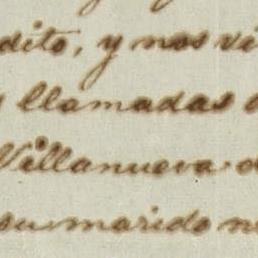 dito, y nos vi
y llamadas
Villanueva d
su marido n